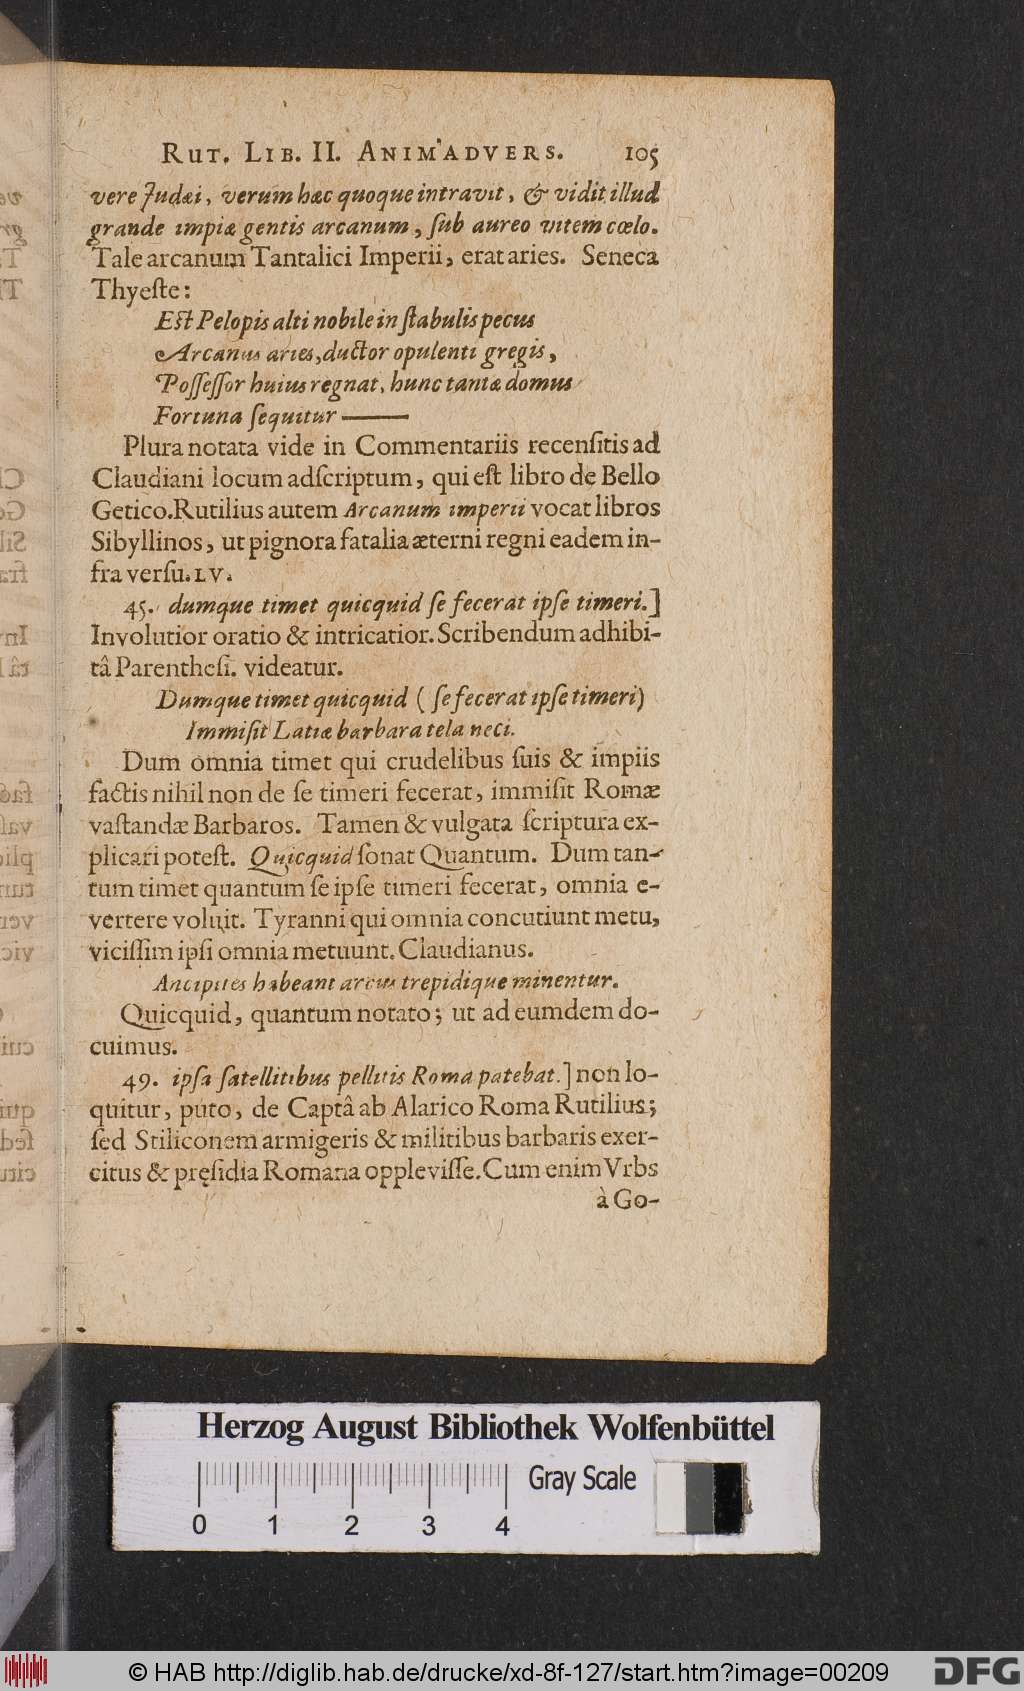 RUT. LIB. II. ANIMADVERS. 105
vere Judæi, verum hæc quoque intravit, & vidit illud
grande impiæ gentis arcanum, ſub aureo vitem cœlo.
Tale arcanum Tantalici Imperii, erat aries. Seneca
Thyeſte:
Eſt Pelopis alti nobile in ſtabulis pecus
Arcanus aries, ductor opulenti gregis,
Poſſeſſor huius regnat, hunc tantæ domus
Fortuna ſequitur ———
Plura notata vide in Commentariis recenſitis ad
Claudiani locum adſcriptum, qui eſt libro de Bello
Getico. Rutilius autem Arcanum imperii vocat libros
Sibyllinos, ut pignora fatalia æterni regni eadem in-
fra verſu. LV.
45. dumque timet quicquid ſe fecerat ipſe timeri.]
Involutior oratio & intricatior. Scribendum adhibi-
tâ Parentheſi. videatur.
Dumque timet quicquid (ſe fecerat ipſe timeri)
Immiſit Latiæ barbara tela neci.
Dum omnia timet qui crudelibus ſuis & impiis
factis nihil non de ſe timeri fecerat, immiſit Romæ
vaſtandæ Barbaros. Tamen & vulgata ſcriptura ex-
plicari poteſt. Quicquid ſonat Quantum. Dum tan-
tum timet quantum ſe ipſe timeri fecerat, omnia e-
vertere voluit. Tyranni qui omnia concutiunt metu,
viciſſim ipſi omnia metuunt. Claudianus.
Ancipites habeant arcus trepidique minentur.
Quicquid, quantum notato; ut ad eumdem do-
cuimus.
49. ipſa ſatellitibus pellitis Roma patebat.] non lo-
quitur, puto, de Captâ ab Alarico Roma Rutilius;
ſed Stiliconem armigeris & militibus barbaris exer-
citus & pręſidia Romana oppleviſſe. Cum enim Vrbs
à Go-
Herzog August Bibliothek Wolfenbüttel
Gray Scale
0 1 2 3 4
© HAB http://diglib.hab.de/drucke/xd-8f-127/start.htm?image=00209
DFG